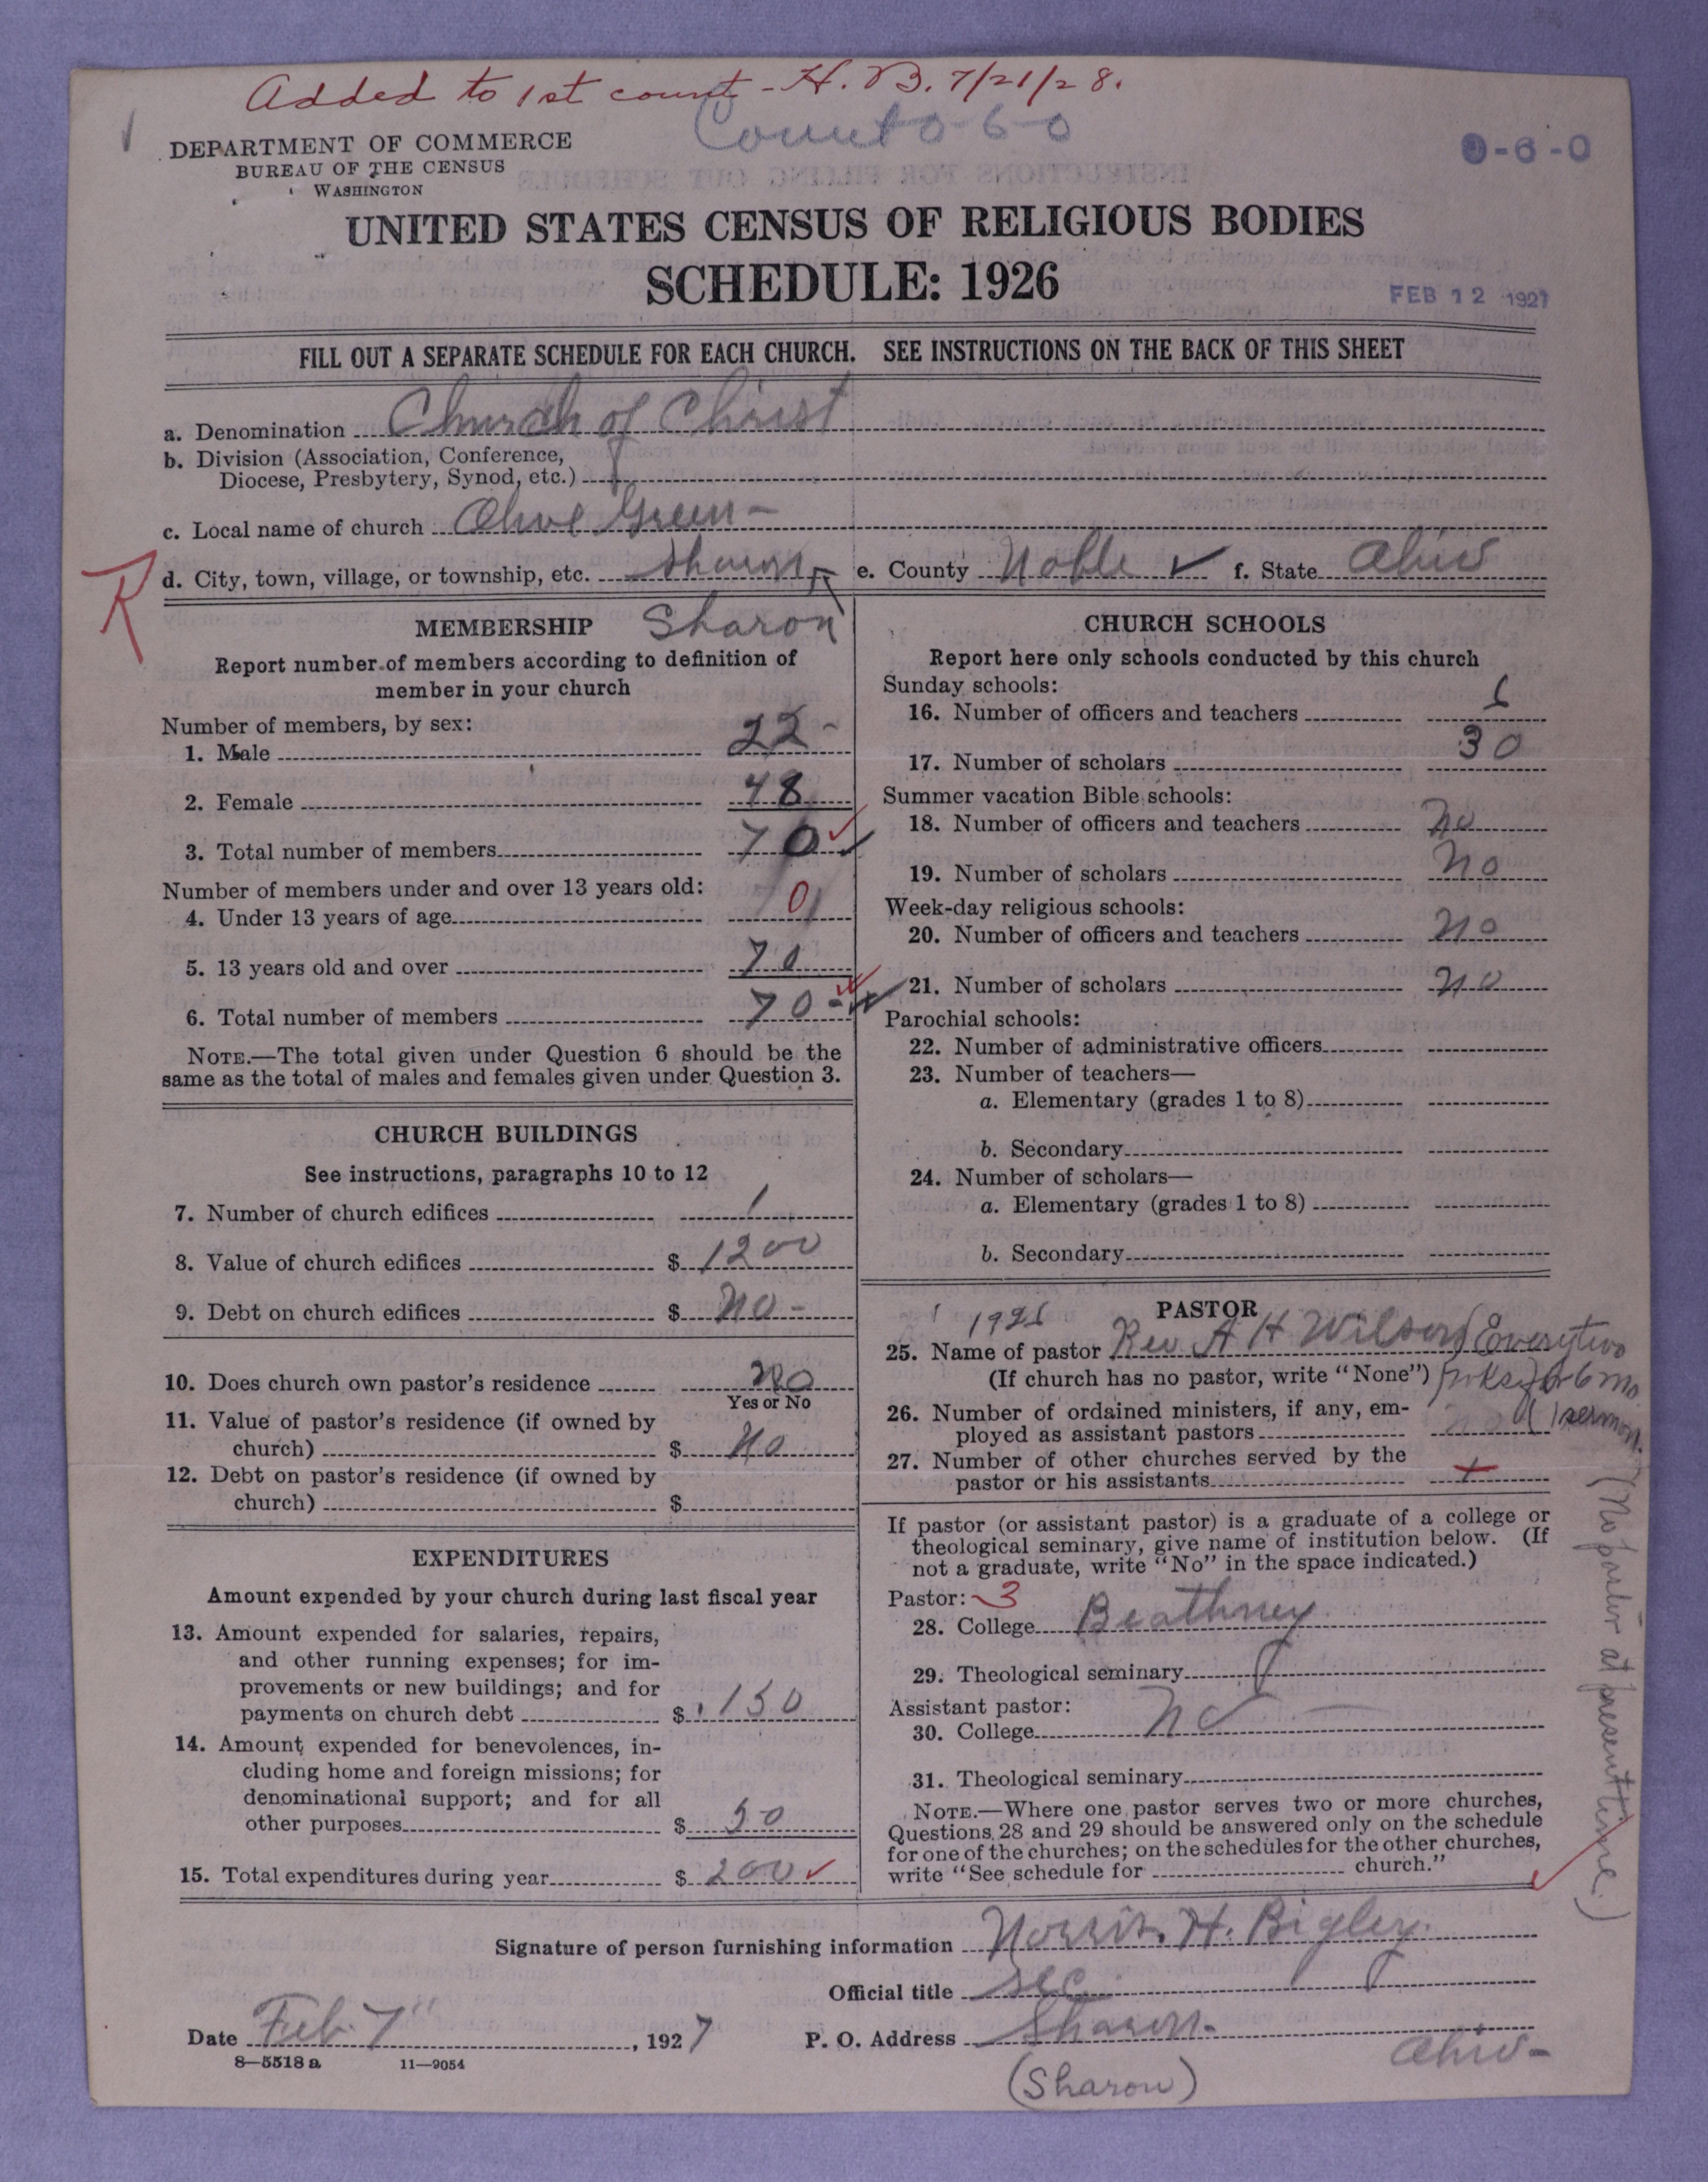 Added to 1st count - H. B. 7/21/28.
Count 0-6-0
DEPARTMENT OF COMMERCE
BUREAU OF THE CENSUS
WASHINGTON
0-6-0
UNITED STATES CENSUS OF RELIGIOUS BODIES
SCHEDULE: 1926
FEB 12 1927
FILL OUT A SEPARATE SCHEDULE FOR EACH CHURCH. SEE INSTRUCTIONS ON THE BACK OF THIS SHEET
a. Denomination Church of Christ
b. Division (Association, Conference,
Diocese, Presbytery, Synod, etc.)
c. Local name of church Olive Green -
R
d. City, town, village, or township, etc. Sharon e. County Noble ✓ f. State Ohio
MEMBERSHIP Sharon
Report number of members according to definition of
member in your church
Number of members, by sex:
1. Male 22 -
2. Female 48
3. Total number of members 70 ✓
Number of members under and over 13 years old:
4. Under 13 years of age 0
5. 13 years old and over 70
6. Total number of members 70 -
NOTE.—The total given under Question 6 should be the
same as the total of males and females given under Question 3.
CHURCH BUILDINGS
See instructions, paragraphs 10 to 12
7. Number of church edifices 1
8. Value of church edifices $ 1200
9. Debt on church edifices $ no -
10. Does church own pastor's residence No
Yes or No
11. Value of pastor's residence (if owned by
church) $ No
12. Debt on pastor's residence (if owned by
church) $
EXPENDITURES
Amount expended by your church during last fiscal year
13. Amount expended for salaries, repairs,
and other running expenses; for im-
provements or new buildings; and for
payments on church debt $ 150
14. Amount expended for benevolences, in-
cluding home and foreign missions; for
denominational support; and for all
other purposes $ 50
15. Total expenditures during year $ 200 ✓
CHURCH SCHOOLS
Report here only schools conducted by this church
Sunday schools:
16. Number of officers and teachers 6
17. Number of scholars 30
Summer vacation Bible schools:
18. Number of officers and teachers no
19. Number of scholars no
Week-day religious schools:
20. Number of officers and teachers no
21. Number of scholars no
Parochial schools:
22. Number of administrative officers
23. Number of teachers—
a. Elementary (grades 1 to 8)
b. Secondary
24. Number of scholars—
a. Elementary (grades 1 to 8)
b. Secondary
PASTOR
1926
25. Name of pastor Rev A H Wilson (Every two
(If church has no pastor, write "None") wks) for 6 mo.
26. Number of ordained ministers, if any, em-
ployed as assistant pastors 1 sermon
27. Number of other churches served by the
pastor or his assistants
(No pastor at present time)
If pastor (or assistant pastor) is a graduate of a college or
theological seminary, give name of institution below. (If
not a graduate, write "No" in the space indicated.)
Pastor: 3
28. College Beathney
29. Theological seminary
Assistant pastor:
30. College no
31. Theological seminary
NOTE.—Where one pastor serves two or more churches,
Questions 28 and 29 should be answered only on the schedule
for one of the churches; on the schedules for the other churches,
write "See schedule for church."
Signature of person furnishing information Norris. H. Bigley.
Official title Sec
Date Feb. 7", 1927 P. O. Address Sharon. Ohio -
(Sharon)
8—5518 a 11—9054